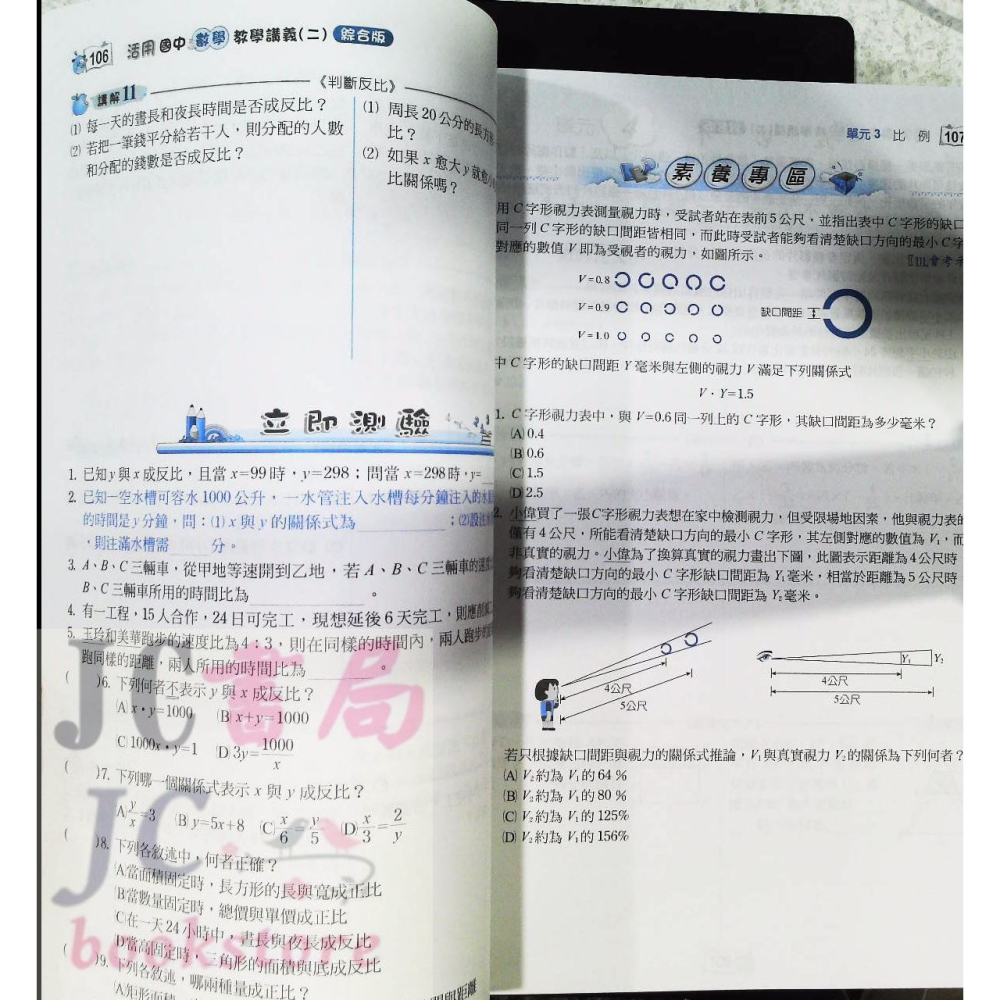 106 活用國中數學教學講義(二) 綜合版
講解11
《判斷反比》
(1) 每一天的晝長和夜長時間是否成反比？
(2) 若把一筆錢平分給若干人，則分配的人數
和分配的錢數是否成反比？
(1) 周長20公分的長方
比？
(2) 如果 x 愈大 y 就愈
比關係嗎？
立即測驗
1. 已知y與x成反比，且當 x=99時，y=298；問當 x=298時，y=
2. 已知一空水槽可容水1000公升，一水管注入水槽每分鐘注入的水
的時間是y分鐘，問：(1) x 與 y 的關係式為 ；(2)設
，則注滿水槽需 分。
3. A、B、C三輛車，從甲地等速開到乙地，若 A、B、C三輛車的速
B、C三輛車所用的時間比為 。
4. 有一工程，15人合作，24日可完工，現想延後6天完工，則應
5. 玉玲和美華跑步的速度比為4：3，則在同樣的時間內，兩人跑步
跑同樣的距離，兩人所用的時間比為 。
( )6. 下列何者不表示 y 與 x 成反比？
(A) x・y=1000 (B) x+y=1000
(C) 1000x・y=1 (D) 3y=1000/x
( )7. 下列哪一個關係式表示 x 與 y 成反比？
(A) y/x=3 (B) y=5x+8 (C) x/6=y/5 (D) x/3=2/y
( )8. 下列各敘述中，何者正確？
(A)當面積固定時，長方形的長與寬成正比
(B)當數量固定時，總價與單價成正比
(C)在一天24小時中，晝長與夜長成反比
(D)當高固定時，三角形的面積與底成反比
( )9. 下列各敘述，哪兩種量成正比？
JC書局
JC
bookstore
單元 3 比 例 107
素養專區
用C字形視力表測量視力時，受試者站在表前5公尺，並指出表中C字形的缺口
同一列C字形的缺口間距皆相同，而此時受試者能夠看清楚缺口方向的最小C字
對應的數值V即為受視者的視力，如圖所示。
V=0.8
V=0.9
V=1.0
缺口間距
中C字形的缺口間距 Y 毫米與左側的視力 V 滿足下列關係式
V・Y=1.5
1. C字形視力表中，與 V=0.6同一列上的C字形，其缺口間距為多少毫米？
(A) 0.4
(B) 0.6
(C) 1.5
(D) 2.5
2. 小偉買了一張C字形視力表想在家中檢測視力，但受限場地因素，他與視力表的
僅有4公尺，所能看清楚缺口方向的最小C字形，其左側對應的數值為 V₁，而
非真實的視力。小偉為了換算真實的視力畫出下圖，此圖表示距離為4公尺時
夠看清楚缺口方向的最小C字形缺口間距為 Y₁毫米，相當於距離為5公尺時
夠看清楚缺口方向的最小C字形缺口間距為 Y₂毫米。
4公尺
5公尺
Y₁
Y₂
4公尺
5公尺
若只根據缺口間距與視力的關係式推論，V₁與真實視力 V₂的關係為下列何者？
(A) V₂約為 V₁的 64 %
(B) V₂約為 V₁的 80 %
(C) V₂約為 V₁的 125%
(D) V₂約為 V₁的 156%